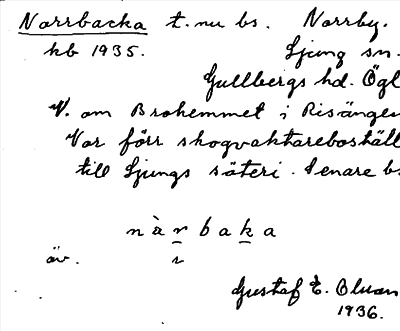 Norrbacka t. nu bs. Norrby.
kb 1935. Ljung sn.
Gullbergs hd. Ögl
V. om Brohemmet i Risängen
Var förr skogvaktareboställ
till Ljungs säteri. Senare bs
nàrbaka
äv. ı
Gustaf E. Oluan
1936.